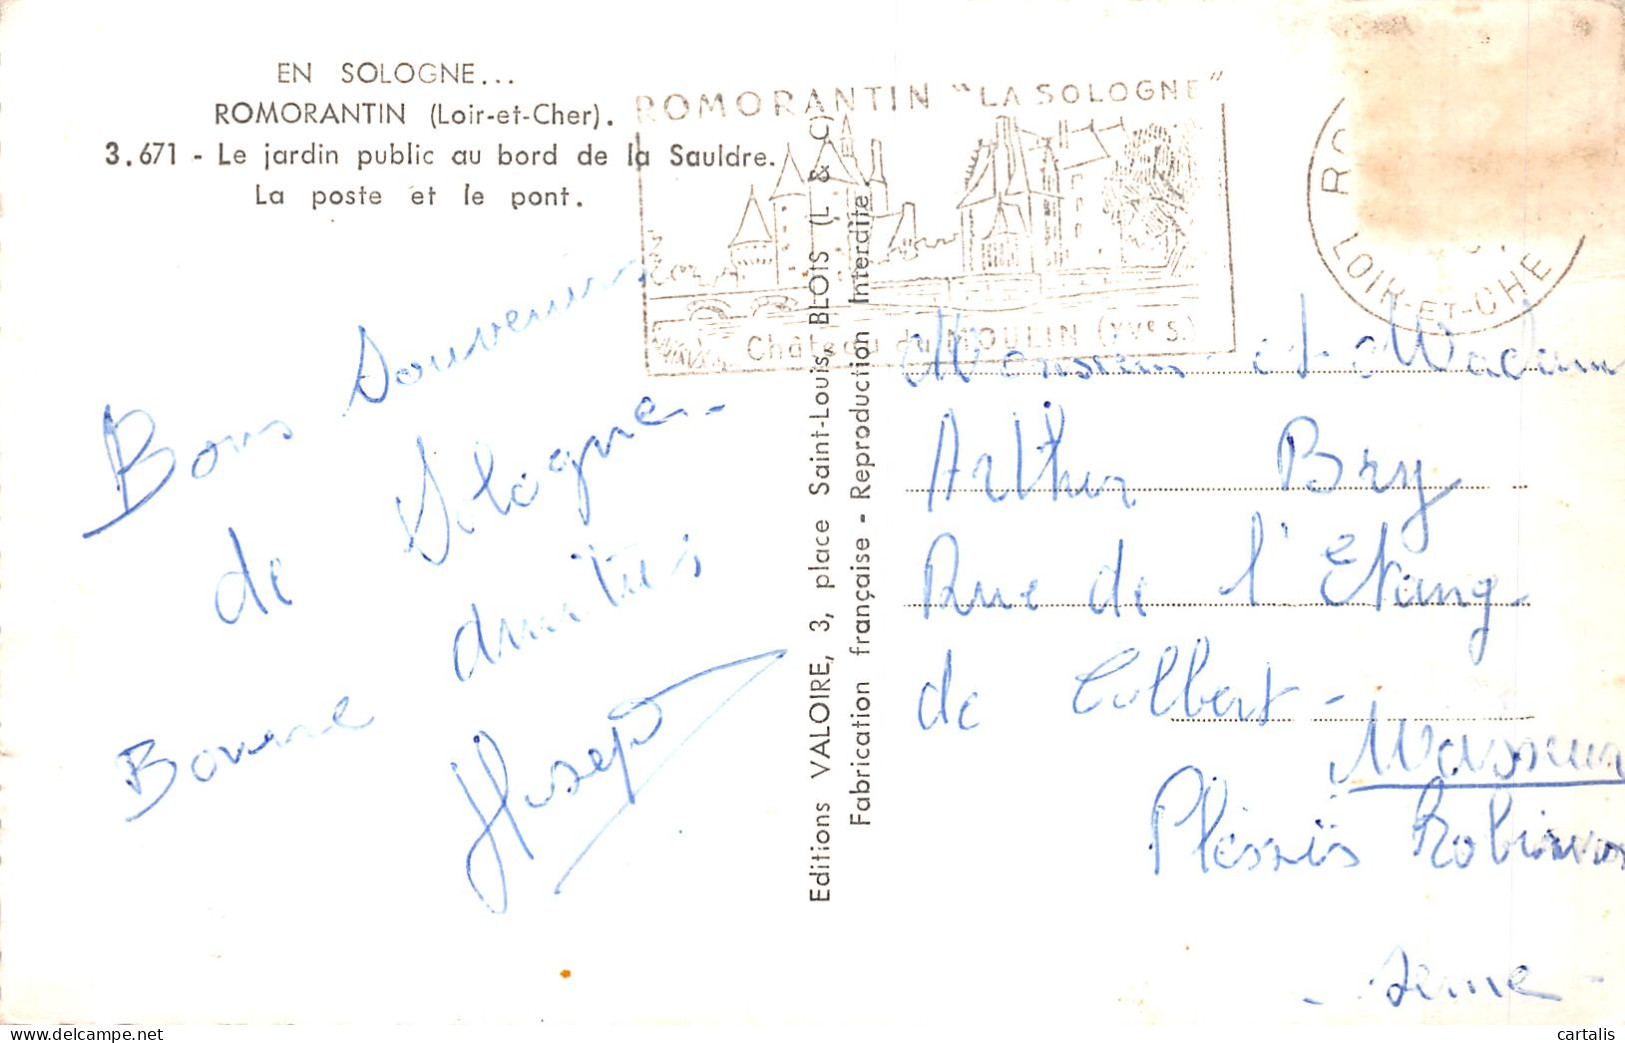 EN SOLOGNE...
ROMORANTIN (Loir-et-Cher).
3.671 - Le jardin public au bord de la Sauldre.
La poste et le pont.
ROMORANTIN "LA SOLOGNE"
Château du MOULIN (XVe S.)
LOIR-ET-CHER
Bons Souvenirs
de Sologne.
Bonne amitiés
Joseph
Editions VALOIRE, 3, place Saint-Louis, BLOIS (L & C)
Fabrication française - Reproduction Interdite.
Monsieur et Madame
Arthur Bry
Rue de l'Etang
de Colbert -
Plessis Robinson
- Seine -
cartalis